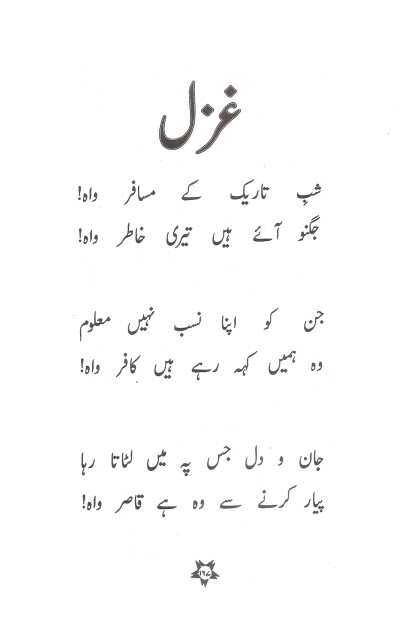 غزل
شبِ تاریک کے مسافر واہ!
جگنو آئے ہیں تیری خاطر واہ!
جن کو اپنا نسب نہیں معلوم
وہ ہمیں کہہ رہے ہیں کافر واہ!
جان و دل جس پہ میں لٹاتا رہا
پیار کرنے سے وہ ہے قاصر واہ!
۱۶۷